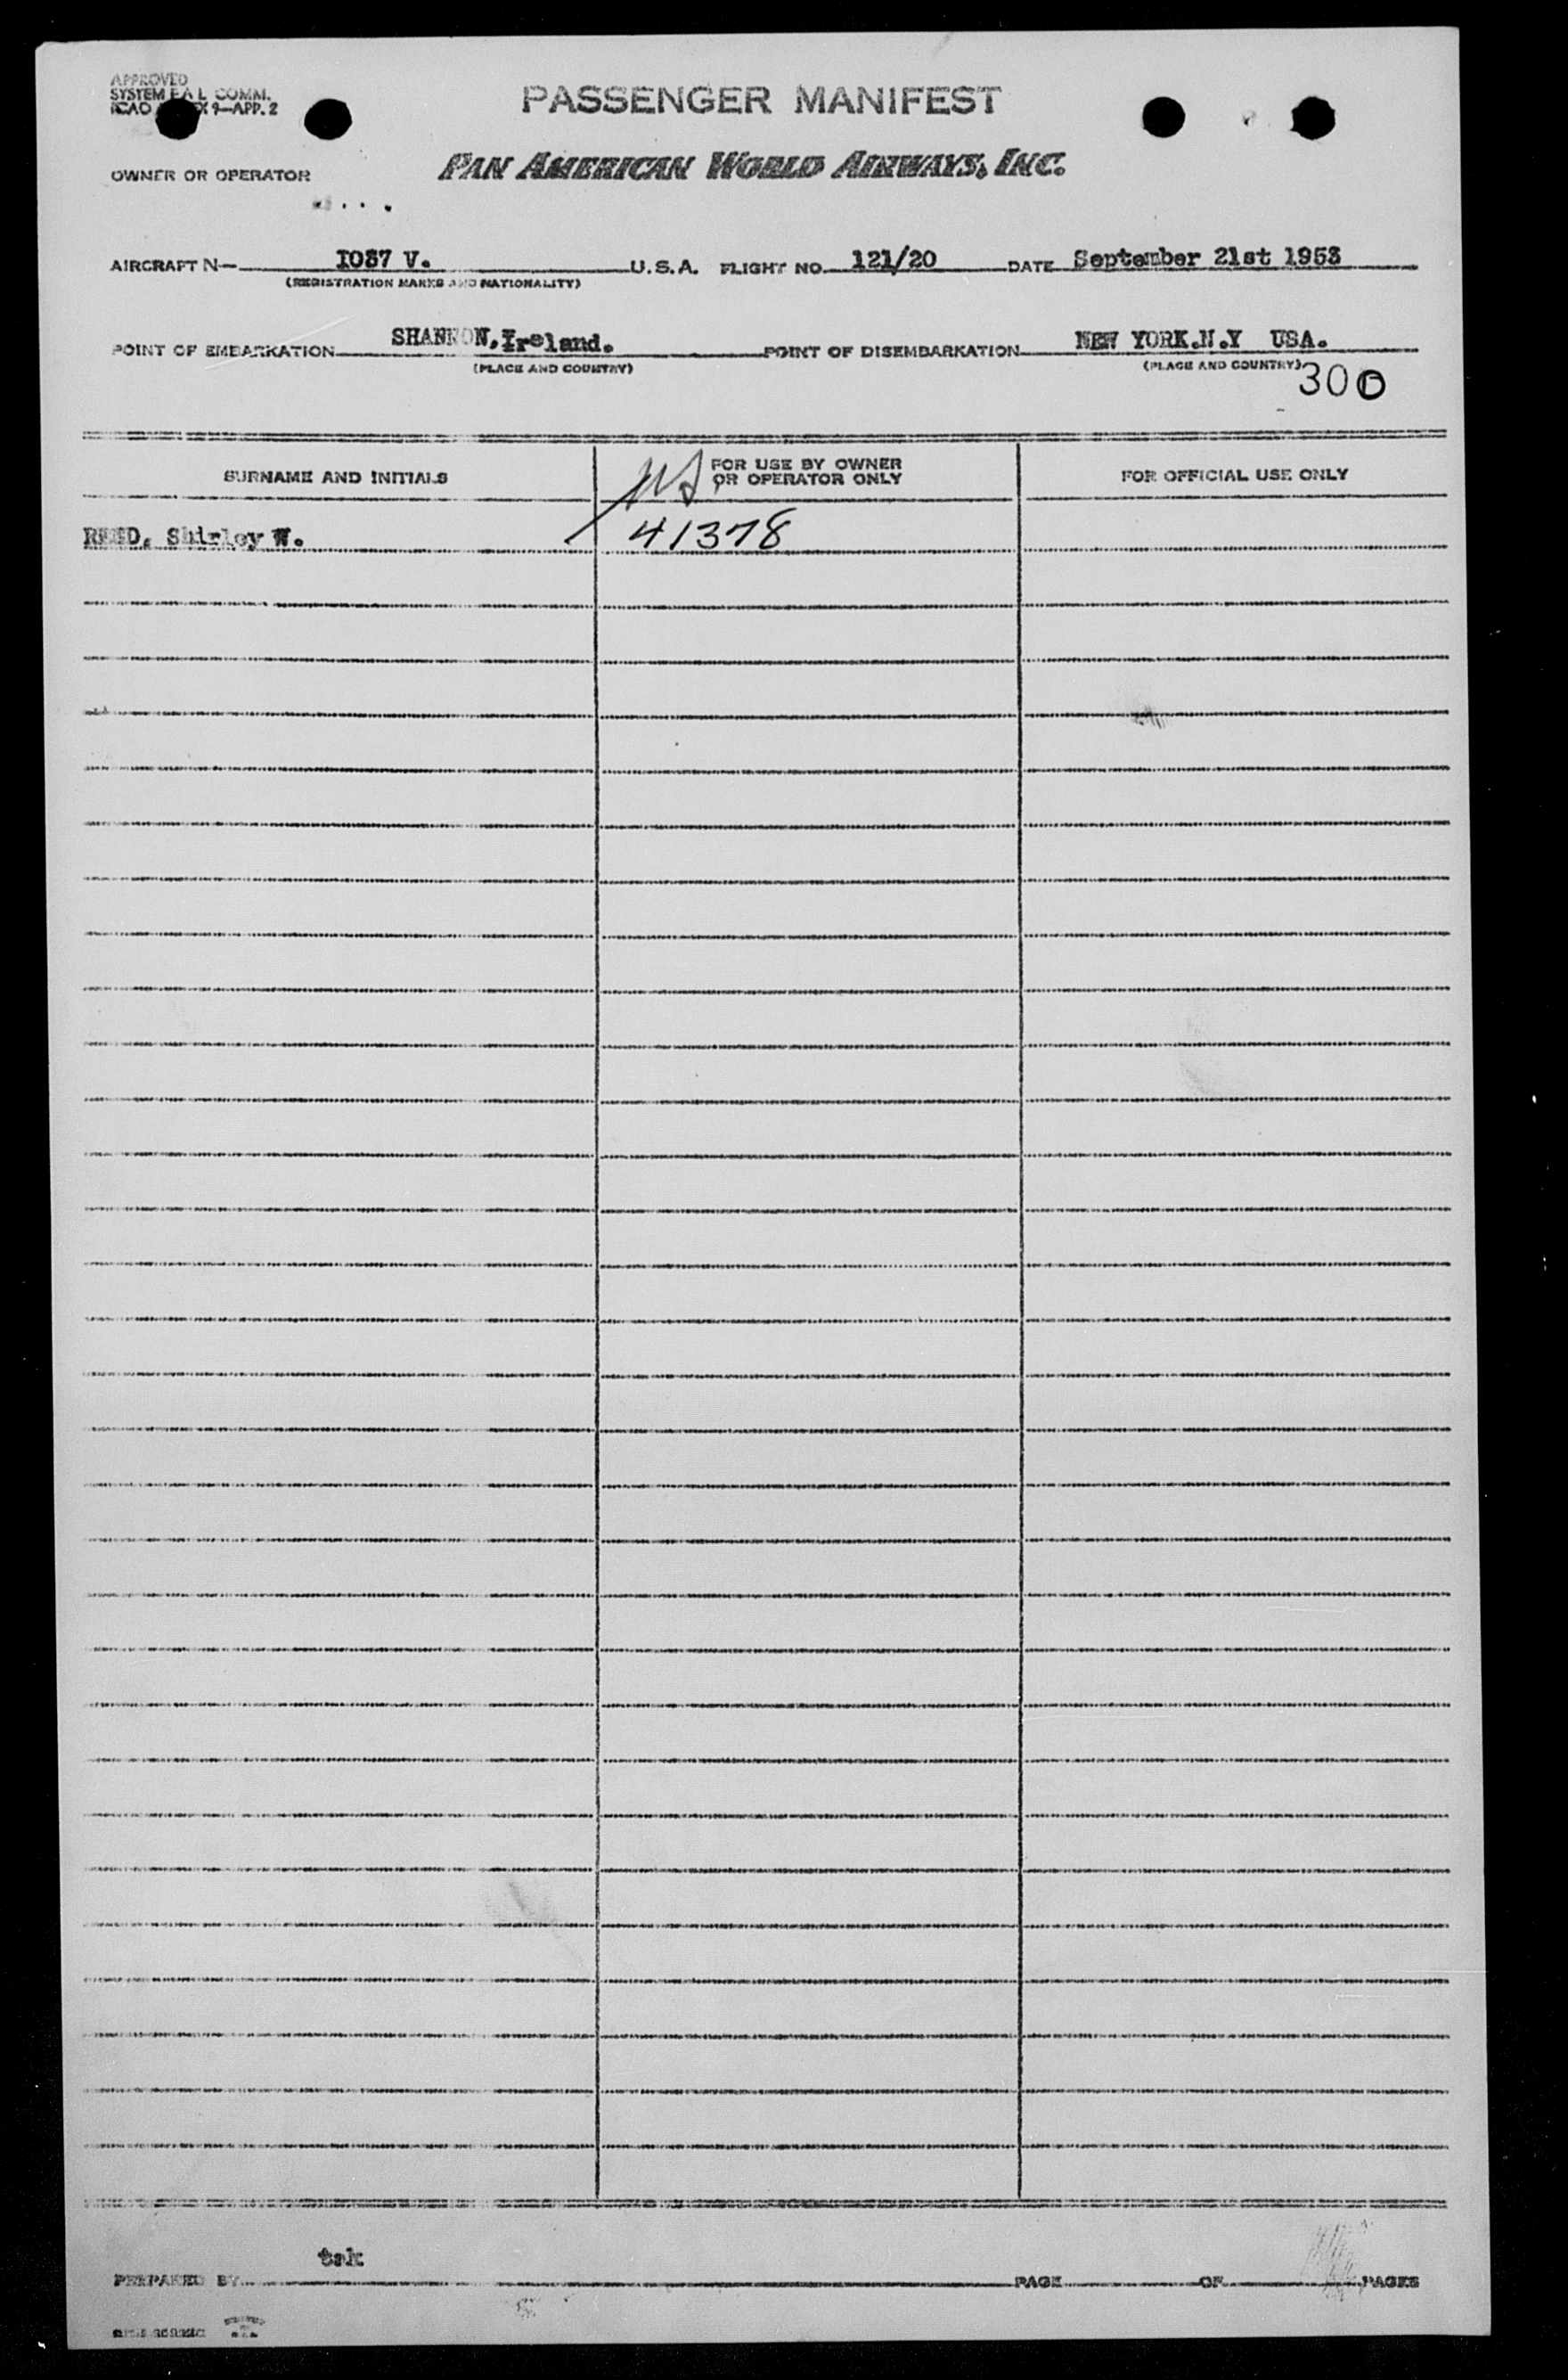 APPROVED
SYSTEM F.A.L. COMM.
ICAO X 9—APP. 2
PASSENGER MANIFEST
OWNER OR OPERATOR
PAN AMERICAN WORLD AIRWAYS, INC.
AIRCRAFT N— 1037 V. U.S.A. FLIGHT NO. 121/20 DATE September 21st 1953
(REGISTRATION MARKS AND NATIONALITY)
POINT OF EMBARKATION SHANNON, Ireland. POINT OF DISEMBARKATION NEW YORK.N.Y USA.
(PLACE AND COUNTRY) (PLACE AND COUNTRY)
300
SURNAME AND INITIALS
FOR USE BY OWNER
OR OPERATOR ONLY
FOR OFFICIAL USE ONLY
REED, Shirley W. 41378
tsk
PREPARED BY PAGE OF PAGES